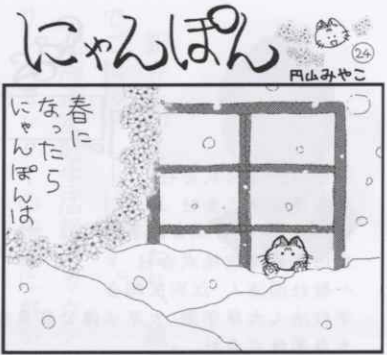 にゃんぽん
24
円山みやこ
春に
なったら
にゃんぽんは